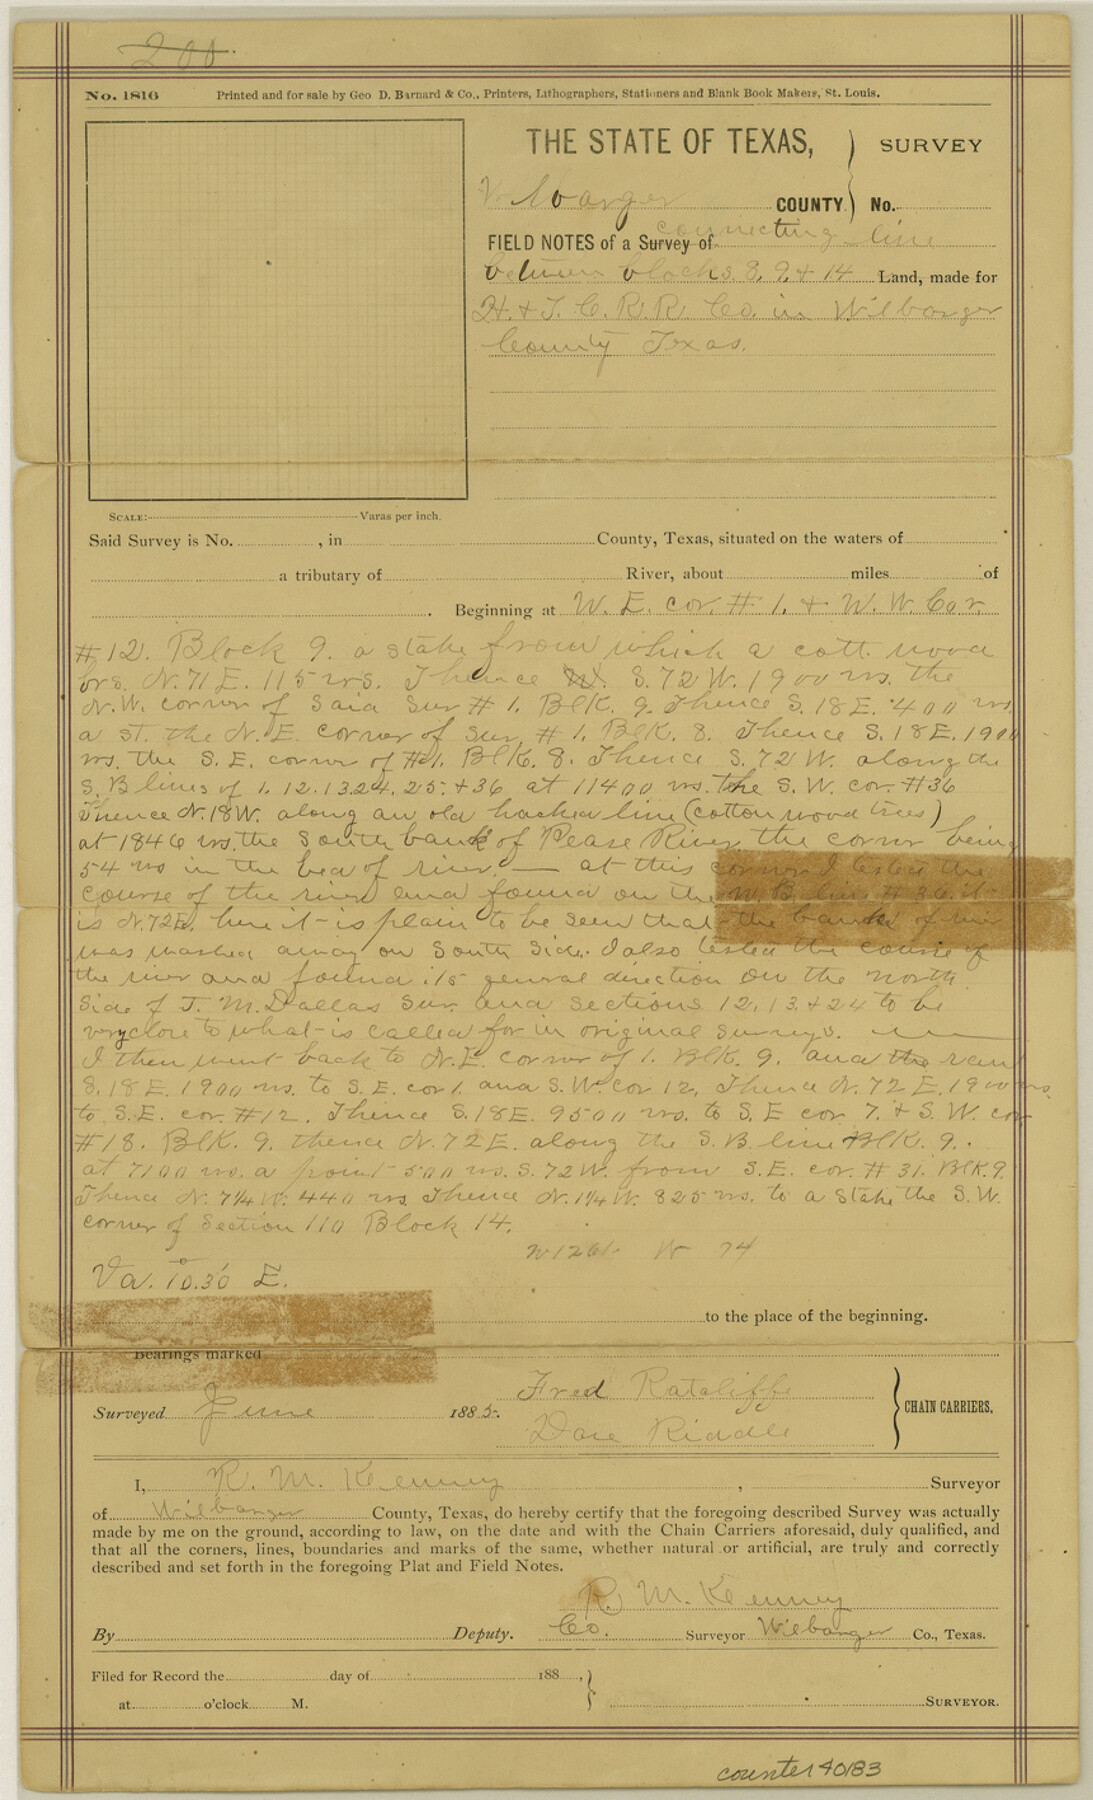 200
No. 1816 Printed and for sale by Geo D. Barnard & Co., Printers, Lithographers, Stationers and Blank Book Makers, St. Louis.
THE STATE OF TEXAS, SURVEY
Wilbarger COUNTY No.
FIELD NOTES of a Survey of connecting line
between blocks. 8, 9, & 14 Land, made for
H. & T. C. R. R. Co. in Wilbarger
County Texas.
SCALE: Varas per inch.
Said Survey is No. , in County, Texas, situated on the waters of
a tributary of River, about miles of
. Beginning at N. E. cor. # 1. & N. W. Cor.
#12. Block 9. a stake from which a cott. wood
brs. N. 71 E. 115 vrs. Thence S. 72 W. 1900 vrs. the
N. W. corner of Said Sur # 1. Blk. 9. Thence S. 18 E. 400 vrs.
a st. the N. E. corner of Sur. # 1. Blk. 8. Thence S. 18 E. 1900
vrs. the S. E. corner of #1. Blk. 8. Thence S. 72 W. along the
S. B lines of 1. 12. 13. 24. 25. & 36 at 11400 vrs. the S. W. cor. #36
Thence N. 18 W. along an old hacked line (cotton wood trees)
at 1846 vrs. the South bank of Pease River the corner being
54 vrs in the bed of river. — at this corner I tested the
course of the river and found on the N. B. line # 36 it
is N. 72 E. here it is plain to be seen that the bank of river
was washed away on South Side. I also tested the course of
the river and found its general direction on the north
Side of J. M. Dallas Sur. and Sections 12, 13 & 24 to be
very close to what is called for in original surveys.
I then went back to N. E. corner of 1. Blk. 9. and the ran
S. 18 E. 1900 vrs. to S. E. cor 1. and S. W. cor 12, Thence N. 72 E. 1900 vrs.
to S. E. cor. #12. Thence S. 18 E. 9500 vrs. to S. E cor. 7. & S. W. cor
#18. Blk. 9. thence N. 72 E. along the S. B. line Blk. 9.
at 7100 vrs. a point 500 vrs. S. 72 W. from S. E. cor. # 31. Blk. 9.
Thence N. 7¼ W. 440 vrs Thence N. 1¼ W. 825 vrs. to a Stake the S. W.
corner of Section 110 Block 14.
N 1261 W 74
Va. 10°.30' E.
to the place of the beginning.
Bearings marked
Surveyed June 1885. Fred Ratcliffe
Riddle CHAIN CARRIERS.
I, R. M. Kenney , Surveyor
of Wilbarger County, Texas, do hereby certify that the foregoing described Survey was actually
made by me on the ground, according to law, on the date and with the Chain Carriers aforesaid, duly qualified, and
that all the corners, lines, boundaries and marks of the same, whether natural or artificial, are truly and correctly
described and set forth in the foregoing Plat and Field Notes.
R. M. Kenney
By Deputy. Co. Surveyor Wilbarger Co., Texas.
Filed for Record the day of 188 ,
at o'clock M. SURVEYOR.
counter 40183